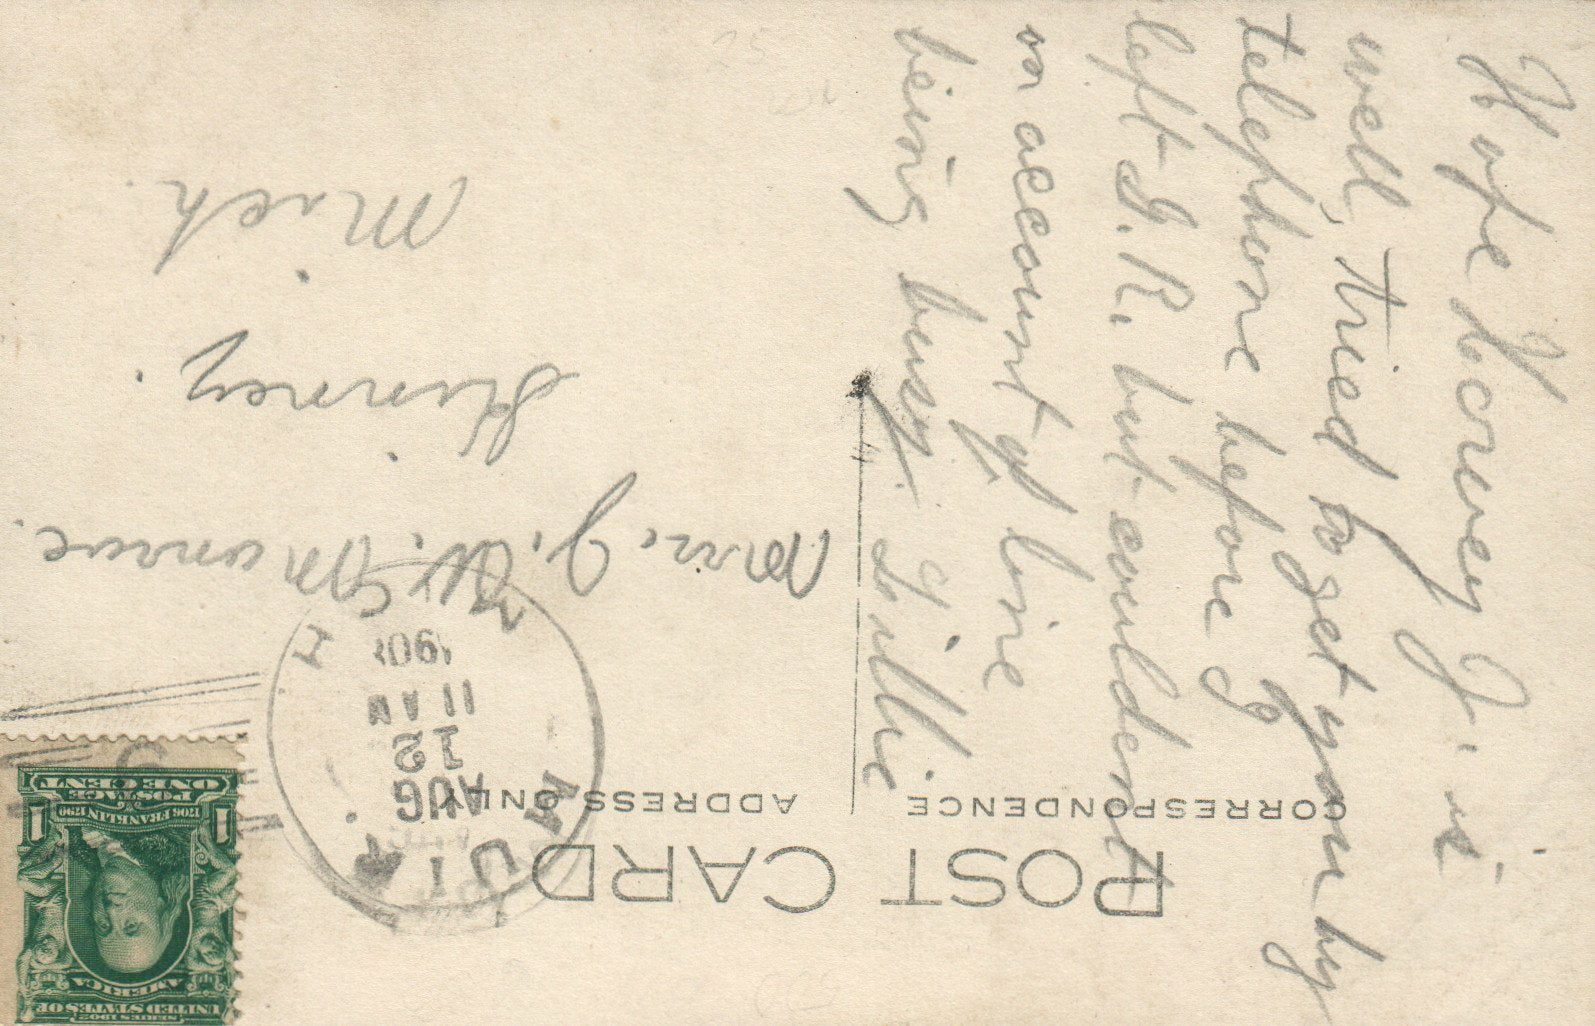 POST CARD
CORRESPONDENCE
ADDRESS ONLY
Hope Lorney J. is
well, tried to get you by
telephone before I
left G. R. but couldent
on account of line
being busy. Lillie
Mrs. J. W. Munroe.
Mich.
MUIR
AUG
12
11 AM
SERIES 1902
UNITED STATES OF
AMERICA
1706 FRANKLIN 1790
POSTAGE
ONE CENT
1 1